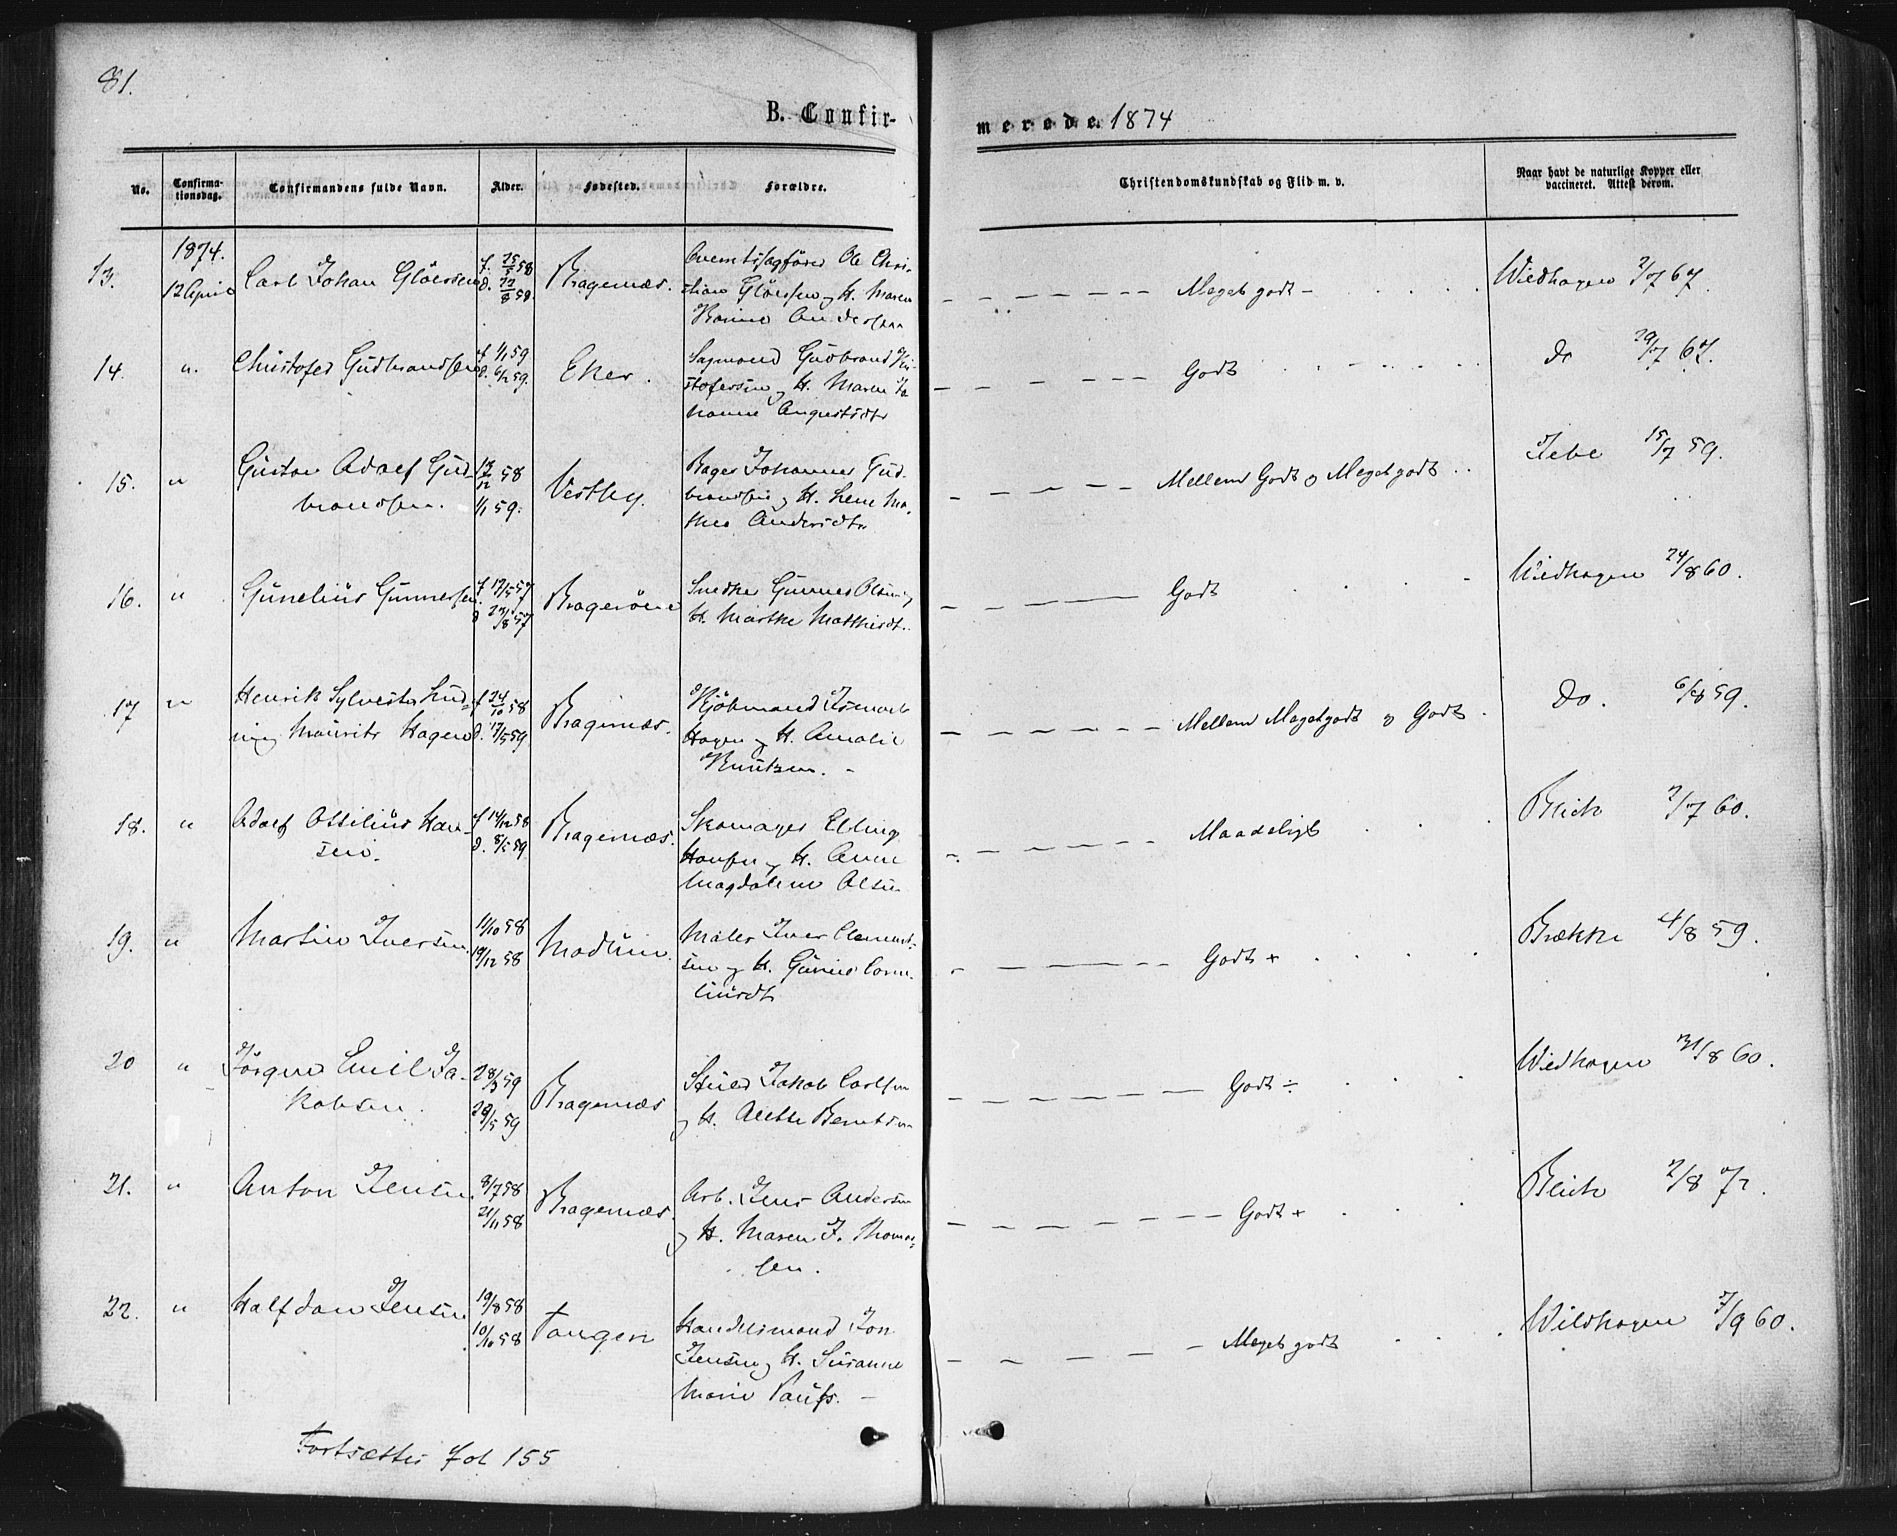 81.
B. Confir-
merede. 1874
No.
Confirma-
tionsdag.
Confirmandens fulde Navn.
Alder.
Fødested.
Forældre.
Christendomskundskab og Flid m. v.
Naar havt de naturlige Kopper eller
vaccineret. Attest derom.
1874.
13.
12 April
Carl Johan Glöersen
f. 25/5 58
d. 22/8 58
Bragernæs.
Overretssagfører Ole Chri-
stian Glöersen og H. Maren
Karine Anderssen
Meget godt
Wiedhagen 2/7 67.
14.
"
Christofer Gudbrandsen
f 1/1 59
d. 6/2 59.
Eker.
Sagmand Gudbrand Kri-
stofersen og H. Maren Jo
hanne Augustsdtr
Godt
do 29/7 67.
15.
"
Gustav Adolf Gud-
brandsen.
13/12 58
1/1 59.
Vestby.
Bager Johannes Gud-
brandsen og H. Lene Ma-
thea Andersdtr
Mellem Godt og Meget godt
Iebe 15/7 59.
16.
"
Gunelius Gunnersen
f 17/5 57
d 23/8 57
Bragerøen
Snedker Gunner Olsen og
H. Marthe Mathisdt.
Godt
Wiedhagen 24/8 60.
17
"
Henrik Sylvester Lud-
vig Mauritz Hagen
f 24/10 58
d. 17/5 59
Bragernæs.
Kjöbmand Ismael
Hagen og H. Amalie
Knutzen.
Mellem Meget godt og Godt
Do. 6/8 59.
18.
"
Adolf Ottilius Han-
sen.
f 14/12 58
d. 8/5 59
Bragernæs.
Skomager Elling
Hansen og H. Anne
Magdalene Olsen
Maadeligt
Blich 2/7 60.
19.
"
Martin Iversen
11/10 58
19/12 58
Modum.
Maler Iver Clemet-
sen og H. Gunild Corne-
liusdt
Godt +
Brække 4/8 59.
20
"
Jörgen Emil Ja-
kobsen.
28/3 59
29/5 59
Bragernæs
Stuer Jakob Carlsen
og H. Alette Berntsen
Godt ÷
Wiedhagen 31/8 60.
21.
"
Anton Jensen
8/7 58
21/11 58
Bragernæs.
Arb. Jens Andersen
og H. Maren J. Thomas-
sen.
Godt +
Blich 2/8 72.
22.
"
Halfdan Jensen
19/8 58
10/10 58
Tangen
Handelsmand Jon
Jensen og H. Susanne
Marie Paufs.
Meget godt
Wildhagen 7/9 60.
Fortsættes fol 155